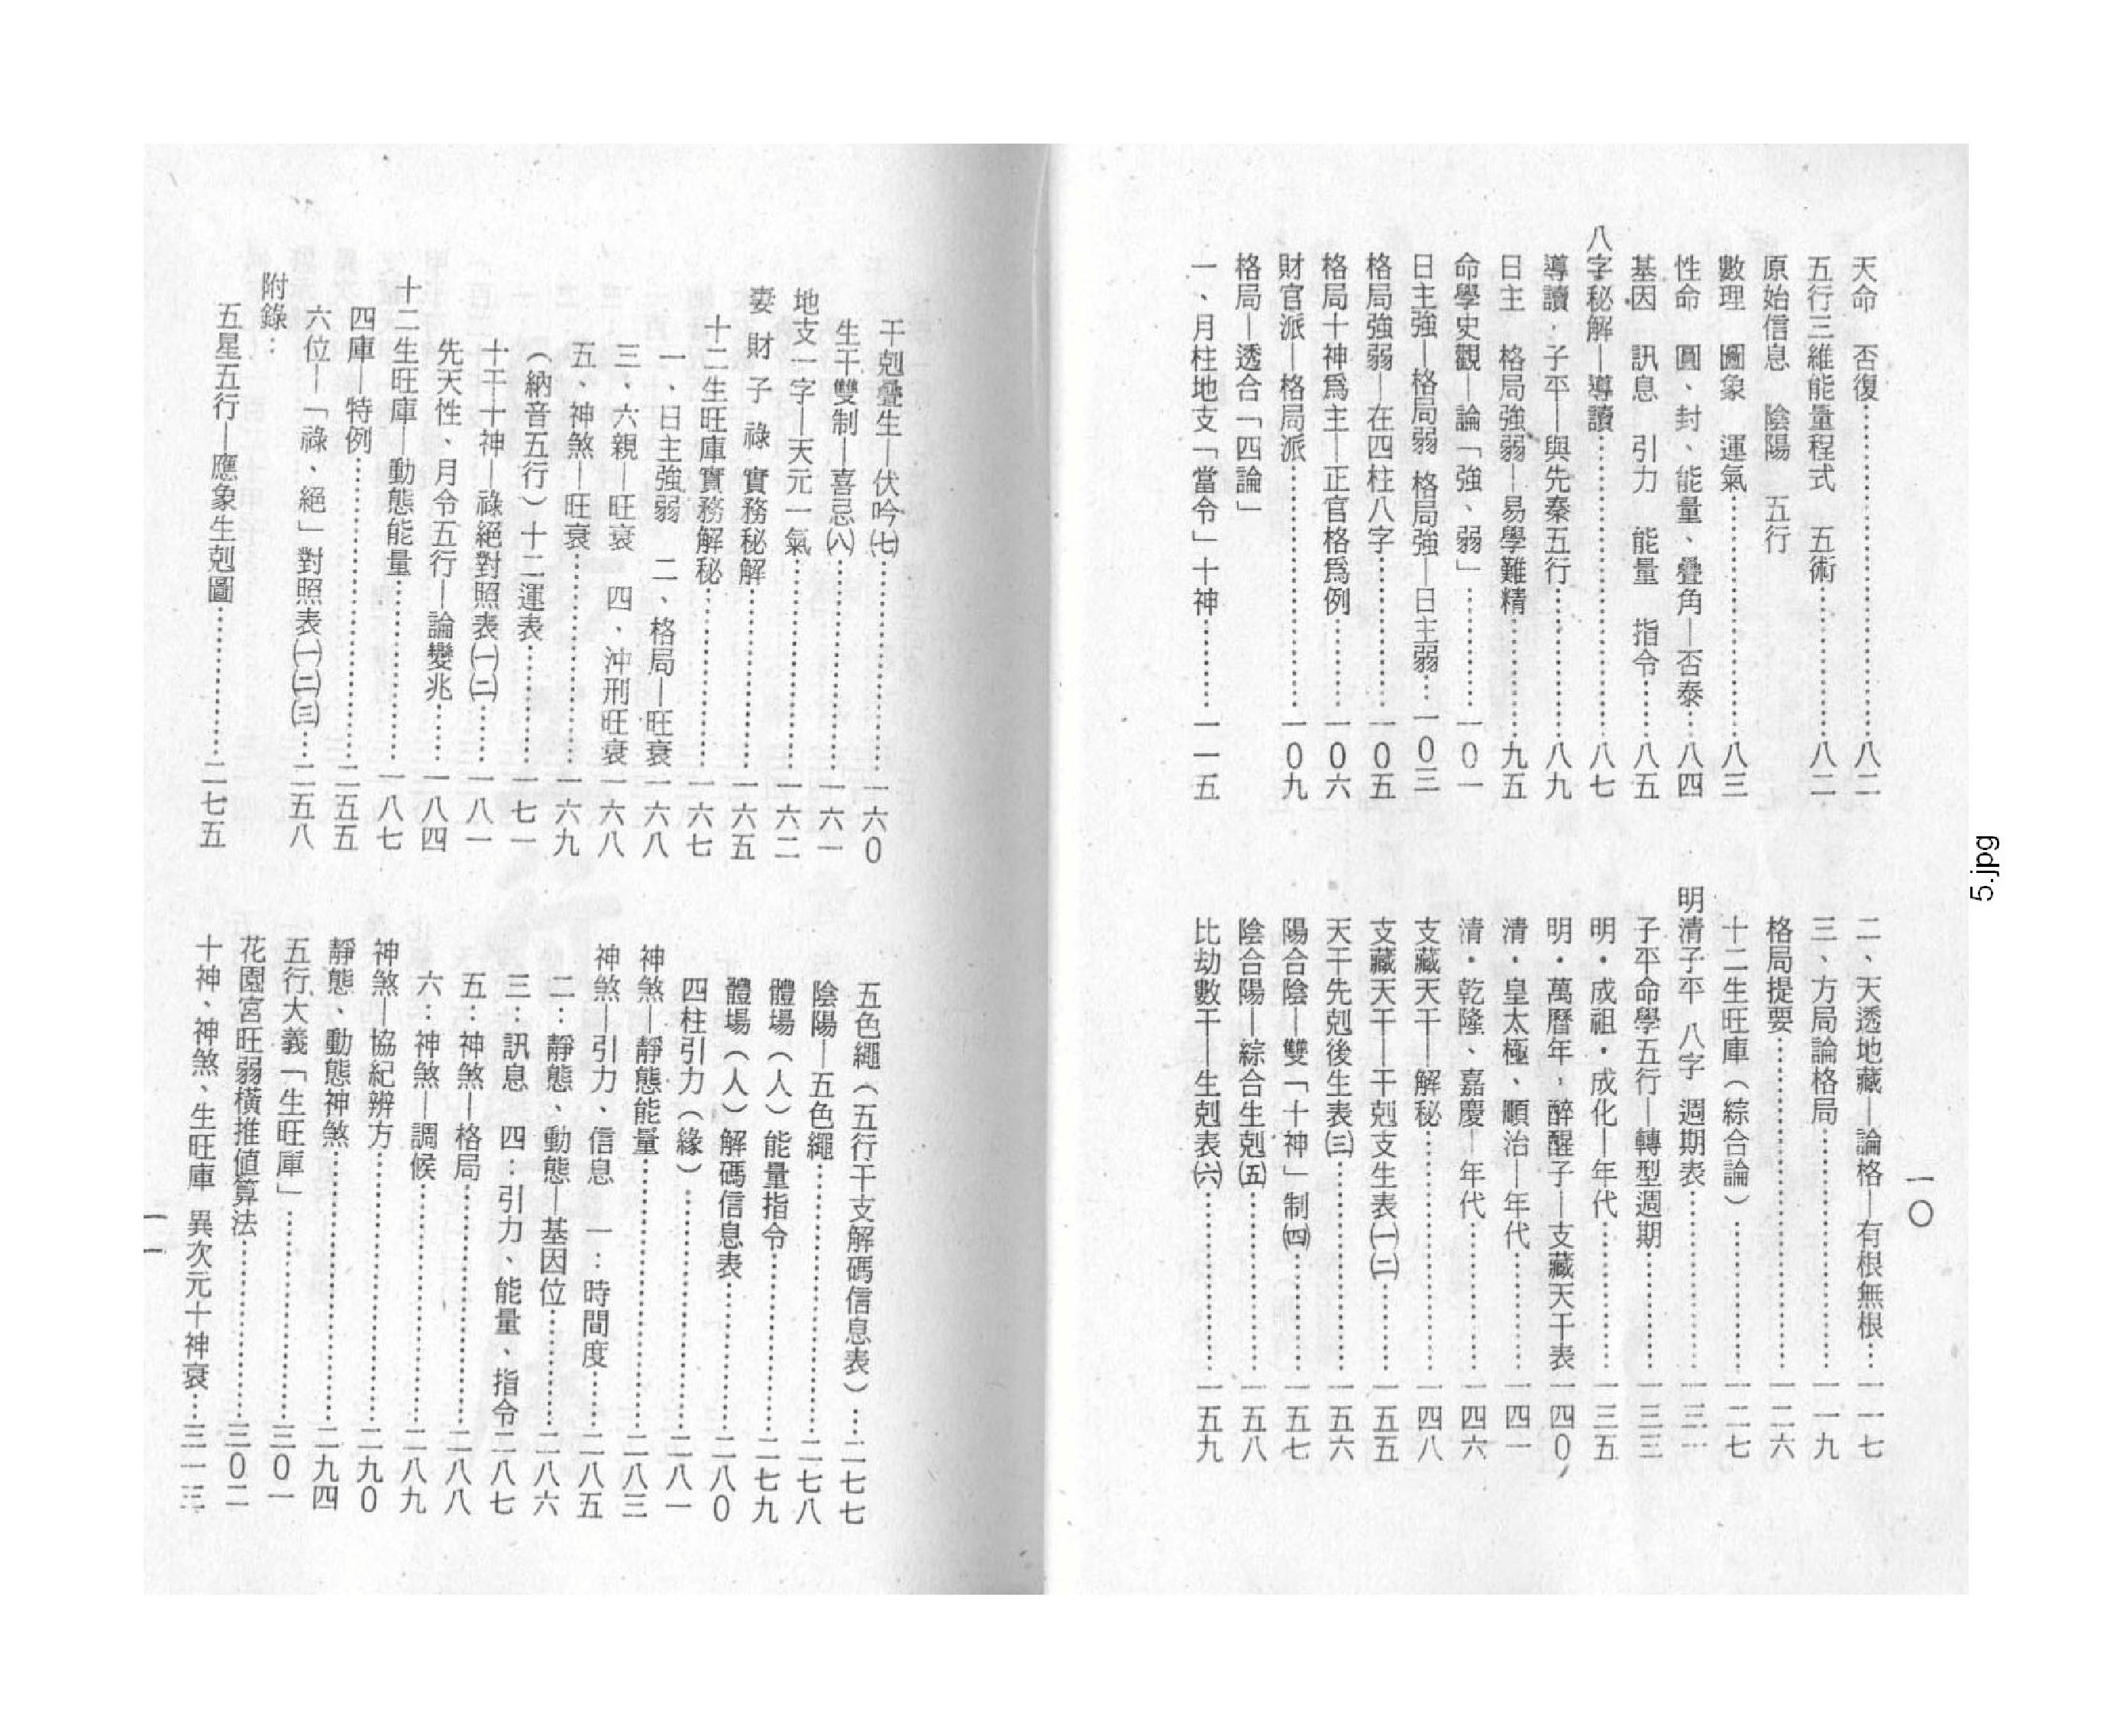 一〇
天命　否復……八二
五行三維能量程式　五術……八二
原始信息　陰陽　五行
數理　圖象　運氣……八三
性命　圓、封、能量、疊角—否泰…八四
基因　訊息　引力　能量　指令……八五
八字秘解—導讀……八七
導讀．子平—與先秦五行……八九
日主　格局強弱—易學難精……九五
命學史觀—論「強、弱」……一0一
日主強—格局弱　格局強—日主弱…一0三
格局強弱—在四柱八字……一0五
格局十神爲主—正官格爲例……一0六
財官派—格局派……一0九
格局—透合「四論」
一、月柱地支「當令」十神……一一五
二、天透地藏—論格—有根無根…一一七
三、方局論格局……一一九
格局提要……一二六
十二生旺庫（綜合論）……一二七
明清子平　八字　週期表……一三一
子平命學五行—轉型週期……一三三
明・成祖・成化—年代……一三五
明・萬曆年，醉醒子—支藏天干表　一四0
清・皇太極、順治—年代……一四一
清・乾隆、嘉慶—年代……一四六
支藏天干—解秘……一四八
支藏天干—干剋支生表㈠㈡……一五五
天干先剋後生表㈢……一五六
陽合陰—雙「十神」制㈣……一五七
陰合陽—綜合生剋㈤……一五八
比劫數干—生剋表㈥……一五九
干剋疊生—伏吟㈦……一六0
生干雙制—喜忌㈧……一六一
地支一字—天元一氣……一六二
妻　財　子　祿　實務秘解……一六五
十二生旺庫實務解秘……一六七
一、日主強弱　二、格局—旺衰　一六八
三、六親—旺衰　四、沖刑旺衰　一六八
五、神煞—旺衰……一六九
（納音五行）十二運表……一七一
十干十神—祿絕對照表㈠㈡……一八一
先天性、月令五行—論變兆……一八四
十二生旺庫—動態能量……一八七
四庫—特例……二五五
六位—「祿、絕」對照表㈠㈡㈢…二五八
附錄：
五星五行—應象生剋圖……二七五
五色繩（五行干支解碼信息表）…二七七
陰陽—五色繩……二七八
體場（人）能量指令……二七九
體場（人）解碼信息表……二八0
四柱引力（緣）……二八一
神煞—靜態能量……二八三
神煞—引力、信息　一：時間度……二八五
二：靜態、動態—基因位……二八六
三：訊息　四：引力、能量、指令　二八七
五：神煞—格局……二八八
六：神煞—調候……二八九
神煞—協紀辨方……二九0
靜態、動態神煞……二九四
五行大義「生旺庫」……三0一
花園宮旺弱橫推値算法……三0二
十神、神煞、生旺庫　異次元十神衰…三一三
一一
5.jpg